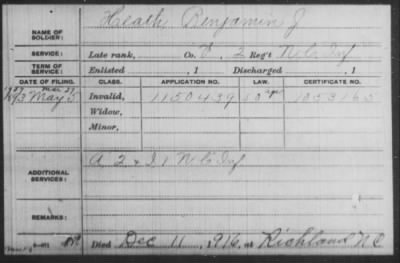 Heath Benjamin J
NAME OF SOLDIER:
SERVICE: Late rank, Co. E, 2 Reg't N.C. Inf
TERM OF SERVICE: Enlisted , 1 Discharged , 1
DATE OF FILING. CLASS. APPLICATION NO. LAW. CERTIFICATE NO.
May 5 Invalid, 1150439 1033165
Widow,
Minor,
A, 2 & I, 1 N.C. Inf
ADDITIONAL SERVICES:
REMARKS:
Died Dec 11, 1916, at Richland N C